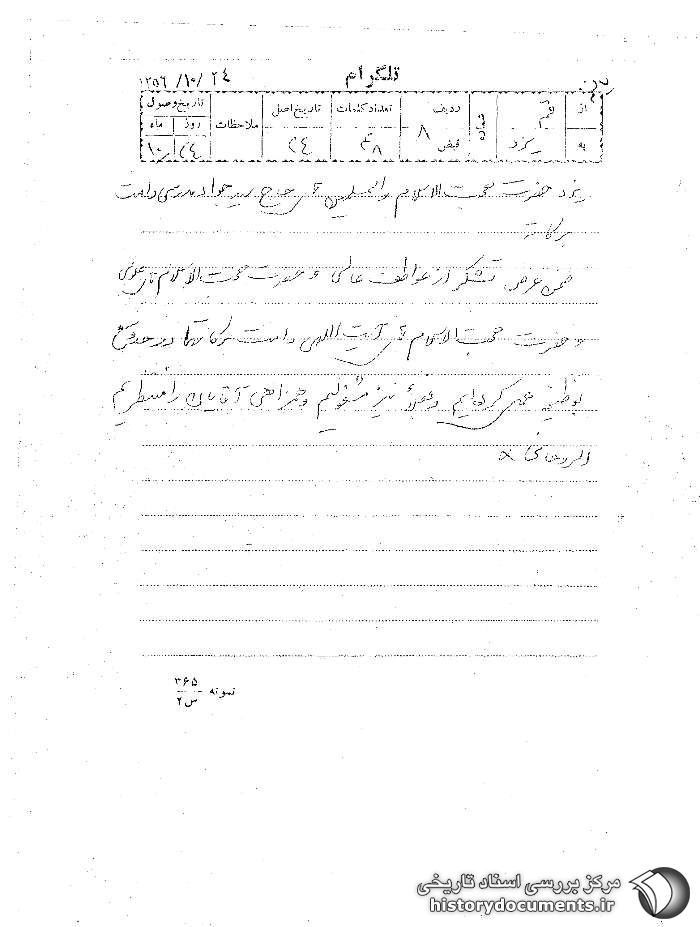 تلگرام ۱۳۵۶/۱۰/۲۴
از قم شماره ردیف ۸ تعداد کلمات ۴۸ تاریخ اصل ۲۴ ملاحظات تاریخ وصول
به یزد قبض روز ۲۴ ماه ۱۰
یزد حضرت حجت الاسلام والمسلمین آقای حاج سید جواد مدرسی دامت
برکاته
ضمن عرض تشکر از عواطف عالی و حضرت حجت الاسلام آقای
و حضرت حجت الاسلام آقای آیت اللهی دامت برکاتهما در حدود
بوظیفه عمل کرده‌ایم و فعلاً نیز مشغولیم و همراهی آقایان را منتظریم
الروحانی
نمونه ۳۶۵
س ۲
مرکز بررسی اسناد تاریخی
historydocuments.ir